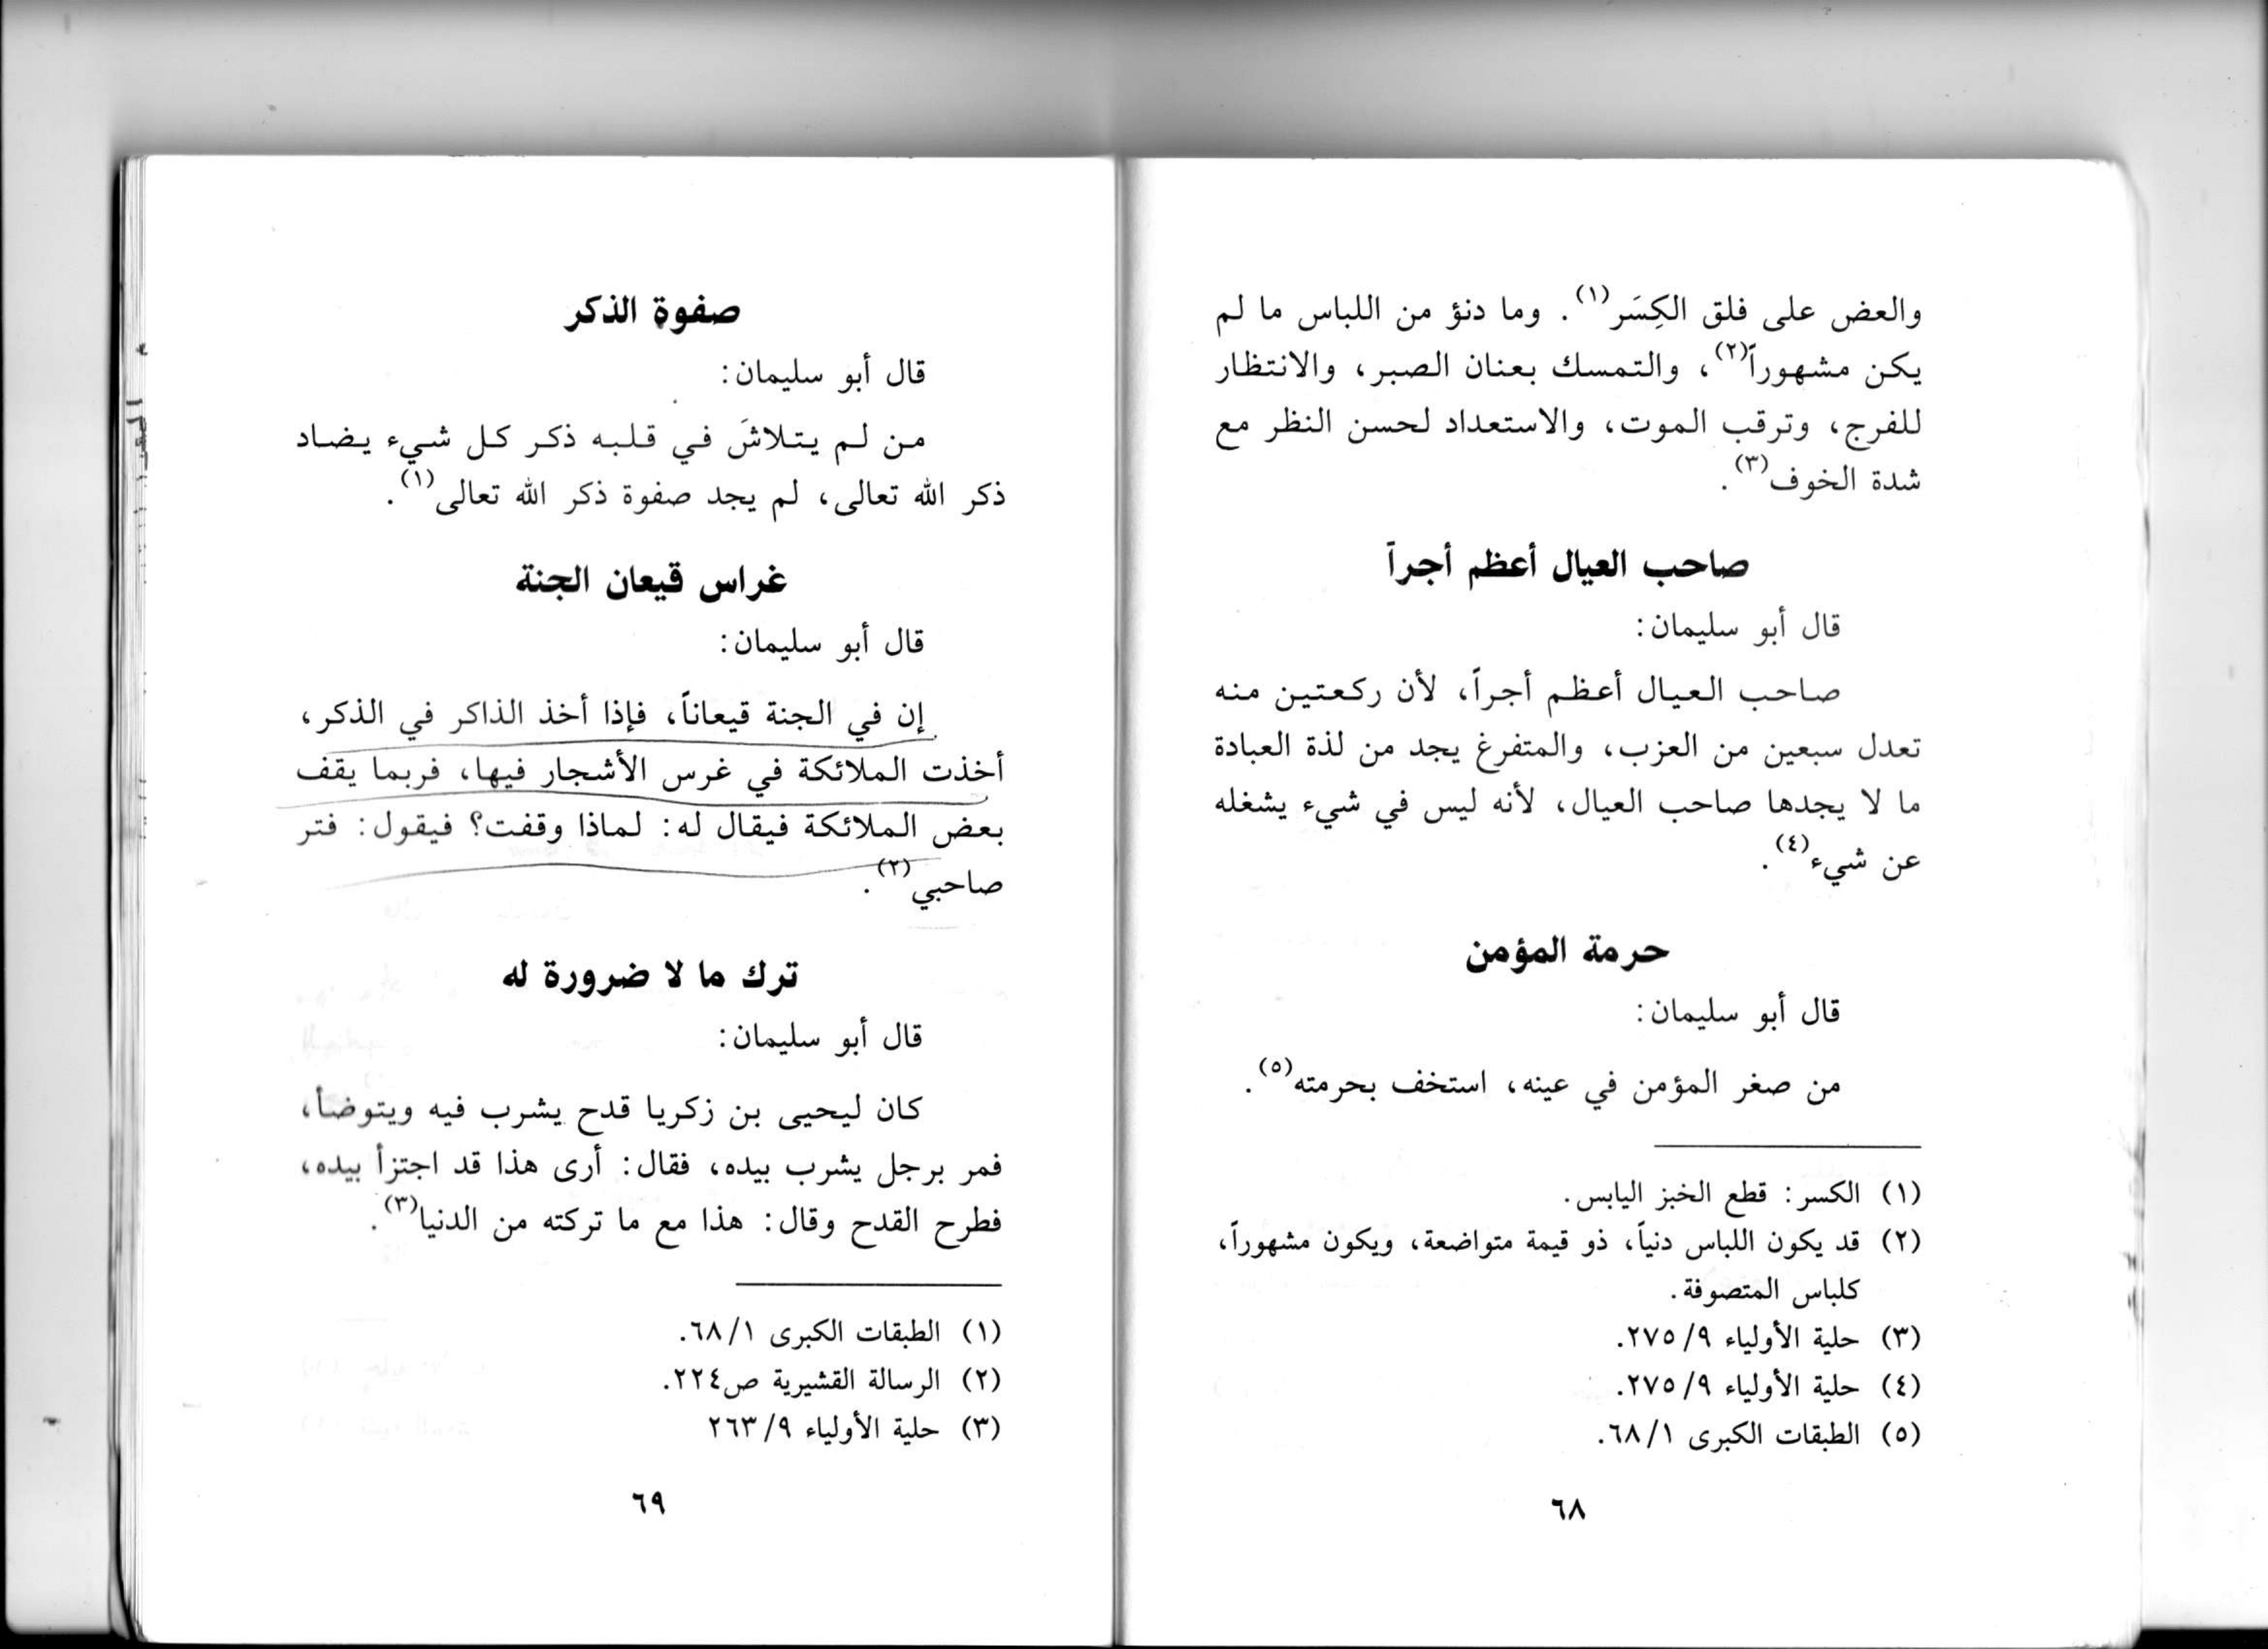 والعض على فلق الكِسَر(١). وما دنؤ من اللباس ما لم
يكن مشهوراً(٢)، والتمسك بعنان الصبر، والانتظار
للفرج، وترقب الموت، والاستعداد لحسن النظر مع
شدة الخوف(٣).
صاحب العيال أعظم أجراً
قال أبو سليمان:
صاحب العيال أعظم أجراً، لأن ركعتين منه
تعدل سبعين من العزب، والمتفرغ يجد من لذة العبادة
ما لا يجدها صاحب العيال، لأنه ليس في شيء يشغله
عن شيء(٤).
حرمة المؤمن
قال أبو سليمان:
من صغر المؤمن في عينه، استخف بحرمته(٥).
(١) الكسر: قطع الخبز اليابس.
(٢) قد يكون اللباس دنياً، ذو قيمة متواضعة، ويكون مشهوراً،
كلباس المتصوفة.
(٣) حلية الأولياء ٩/ ٢٧٥.
(٤) حلية الأولياء ٩/ ٢٧٥.
(٥) الطبقات الكبرى ١/ ٦٨.
٦٨
صفوة الذكر
قال أبو سليمان:
من لم يتلاشَ في قلبه ذكر كل شيء يضاد
ذكر الله تعالى، لم يجد صفوة ذكر الله تعالى(١).
غراس قيعان الجنة
قال أبو سليمان:
إن في الجنة قيعاناً، فإذا أخذ الذاكر في الذكر،
أخذت الملائكة في غرس الأشجار فيها، فربما يقف
بعض الملائكة فيقال له: لماذا وقفت؟ فيقول: فتر
صاحبي(٢).
ترك ما لا ضرورة له
قال أبو سليمان:
كان ليحيى بن زكريا قدح يشرب فيه ويتوضأ،
فمر برجل يشرب بيده، فقال: أرى هذا قد اجتزأ بيده،
فطرح القدح وقال: هذا مع ما تركته من الدنيا(٣).
(١) الطبقات الكبرى ١/ ٦٨.
(٢) الرسالة القشيرية ص٢٢٤.
(٣) حلية الأولياء ٩/ ٢٦٣
٦٩